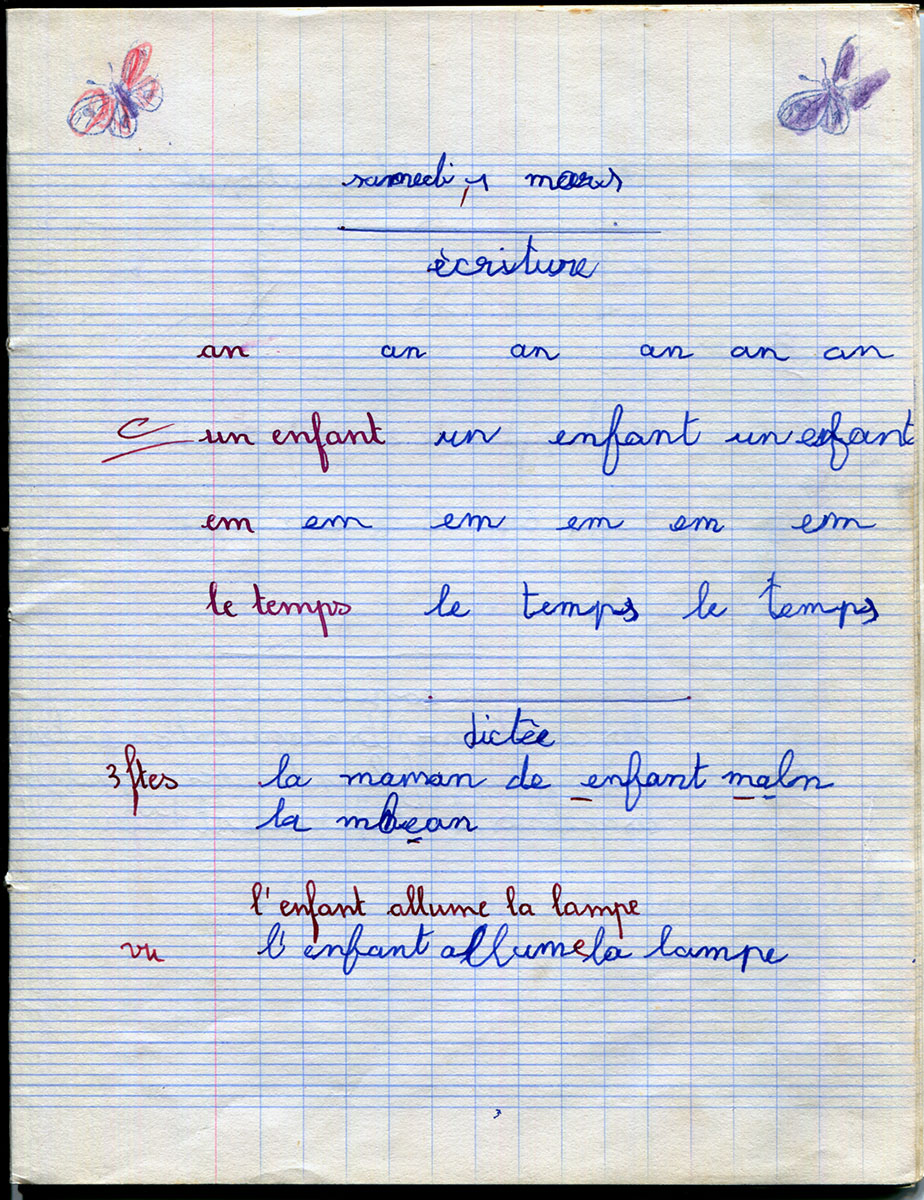 samedi, 1 mars
écriture
an an an an an an
C un enfant un enfant un enfant
em em em em em em
le temps le temps le temps
dictée
3 ftes la maman de enfant maln
la mbean
l'enfant allume la lampe
vu l'enfant allume la lampe